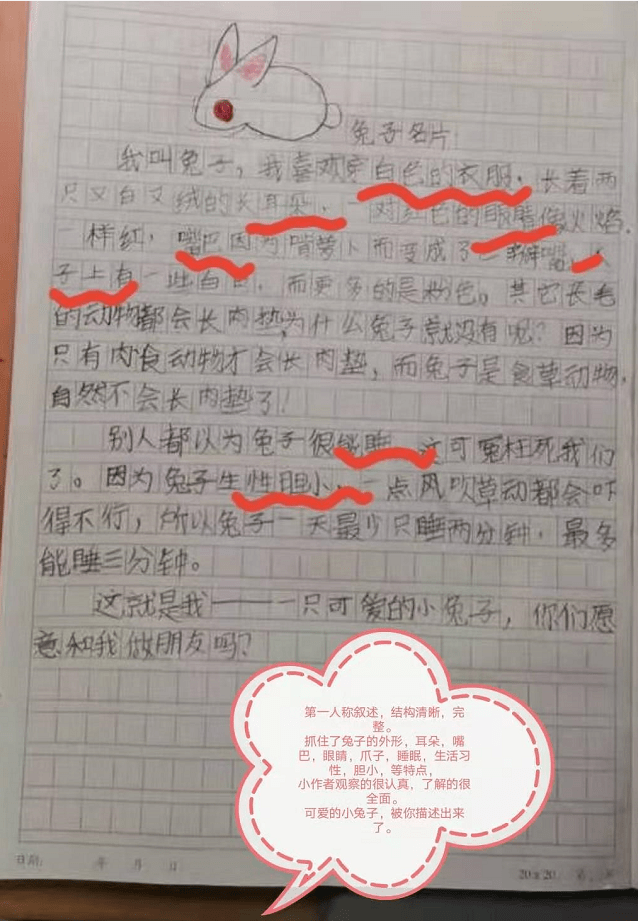 兔子名片
我叫兔子,我喜欢穿白色的衣服,长着两
只又白又绒的长耳朵,一对红色的眼睛像火焰
一样红,嘴巴因为啃萝卜而变成了三瓣嘴,
子上有一些白色,而更多的是粉色。其它长毛
的动物都会长肉垫,为什么兔子就没有呢?因为
只有肉食动物才会长肉垫,而兔子是食草动物,
自然不会长肉垫了!
别人都以为兔子很能睡,这可冤枉死我们
了。因为兔子生性胆小,一点风吹草动都会吓
得不行,所以兔子一天最少只睡两分钟,最多
能睡三分钟。
这就是我——一只可爱的小兔子,你们愿
意和我做朋友吗?
第一人称叙述,结构清晰,完
整。
抓住了兔子的外形,耳朵,嘴
巴,眼睛,爪子,睡眠,生活习
性,胆小,等特点,
小作者观察的很认真,了解的很
全面。
可爱的小兔子,被你描述出来
了。
日期: 年 月 日 20×20 第